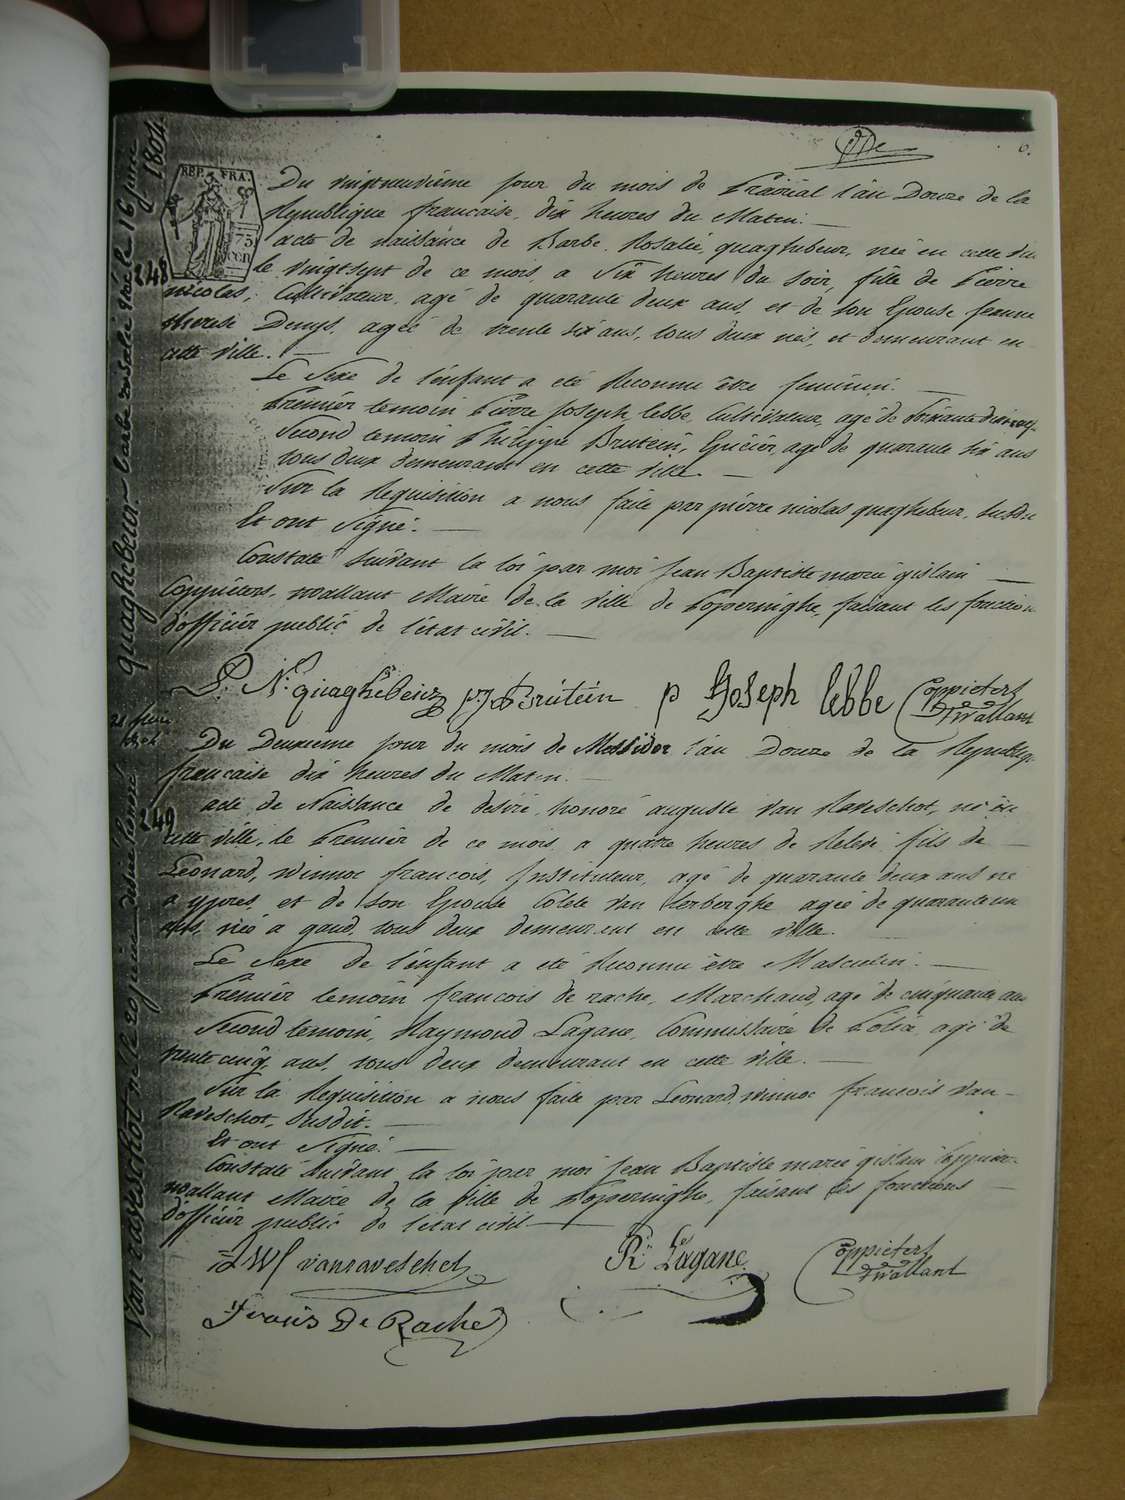 REP. FRA.
75
cen
Du vingtneuvième jour du mois de Prairial l'an Douze de la
Republique francaise, dix heures du Matin.
acte de naissance de Barbe Rosalie, quaghebeur, née en cette vil
le vingtsept de ce mois, a six heures du soir, fille de Pierre
nicolas, Cultivateur, agé de quarante deux ans, et de son Epouse Jeanne
therese Denys, agée de trente six ans, tous deux nés, et demeurant en
cette ville.
Le Sexe de l'enfant a eté Reconnu être feminin.
Premier temoin Pierre Joseph lebbe, Cultivateur, agé de
Second temoin Philippe Brutein, Epicier, agé de quarante six ans
tous deux demeurant en cette ville.
Sur la Requisition a nous faite par pierre nicolas quaghebeur, susdit
Et ont Signé.
Constaté suivant la loi par moi Jean Baptiste marie gislain
Coppieters, wallant Maire de la Ville de Poperinghe, faisant les fonction
d'officier public de l'état civil.
P. N. quaghebeur p. J. Brutein p Joseph lebbe Coppieters
Twallant
Du Deuxieme jour du mois de Messidor l'an Douze de la Republiq
francaise dix heures du Matin.
acte de Naissance de desiré, honoré auguste Van Raveschot, né en
cette ville, le Premier de ce mois a quatre heures de Relevé, fils de
Leonard, winnoc francois, Instituteur, agé de quarante deux ans né
a ypres, et de son Epouse Colete Van Lerberghe agée de quarante un
ans, née a gand, tous deux demeurant en cette ville.
Le Sexe de l'enfant a eté Reconnu être Masculin.
Premier temoin francois de rache, Marchand, agé de cinquante ans
Second temoin, Raymond Lagane, Commissaire de Police, agé de
trente cinq, ans, tous deux demeurant en cette ville.
Sur la Requisition a nous faite par Leonard, winnoc francois Van
Raveschot, susdit.
Et ont Signé.
Constaté suivant la loi par moi Jean Baptiste marie gislain Coppieters
wallant Maire de la Ville de Poperinghe, faisant les fonctions
d'officier public de l'état civil
LWf vanraveschot Rd Lagane Coppieters
Twallant
Franis De Rache
248 quaghebeur barbe rosalie née le 16 juin 1804
249 Van raveschot né le 20 juin desiré honoré
21 juin